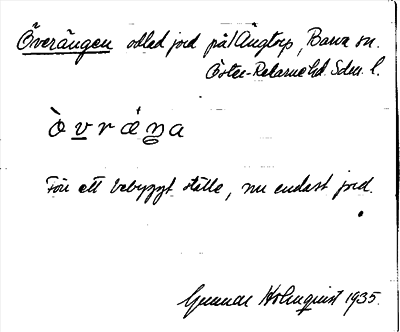 Överängen odlad jord på Ängtorp, Barva sn.
Öster-Rekarne hd. Sdm. l.
òvráŋa
Förr ett bebyggt ställe, nu endast jord.
Gunnar Holmquist 1935.